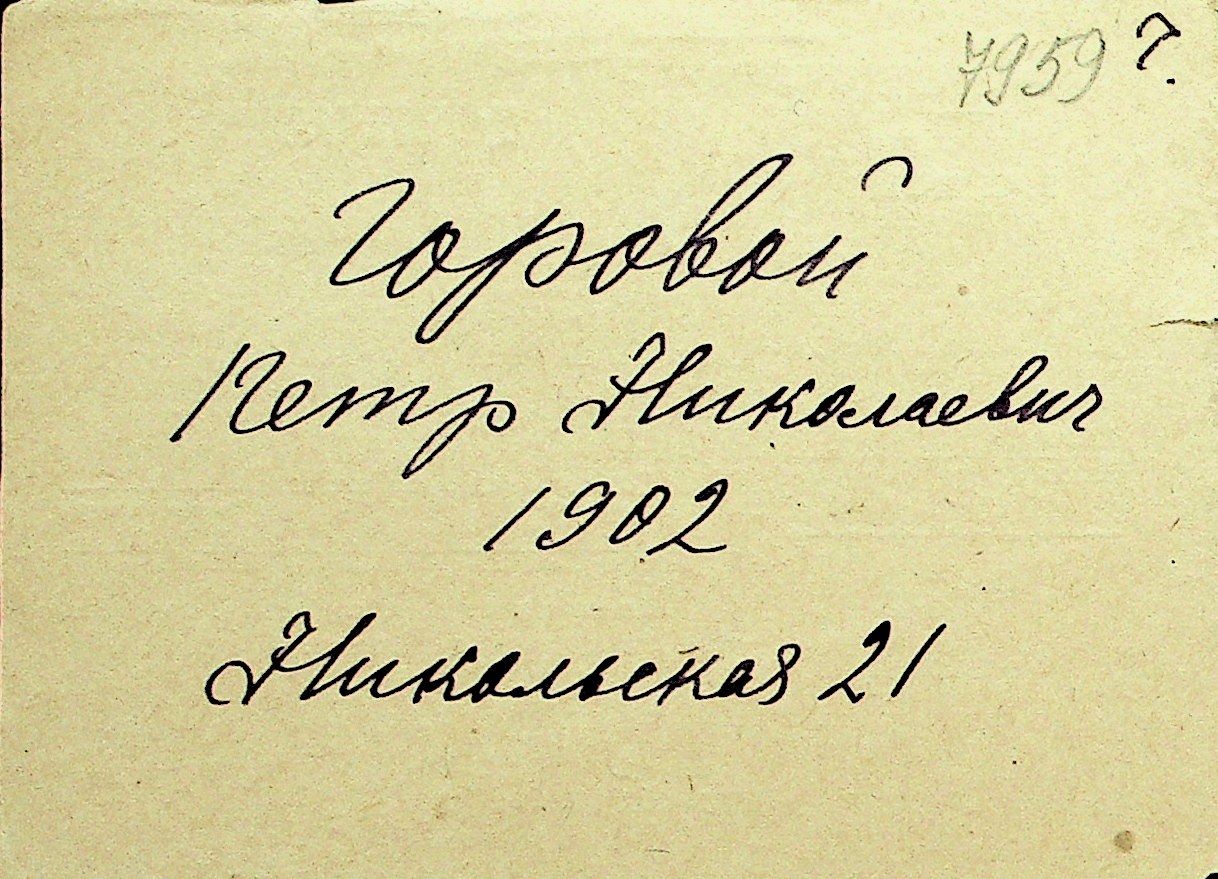 7959 7.
Горовой
Петр Николаевич
1902
Никольская 21